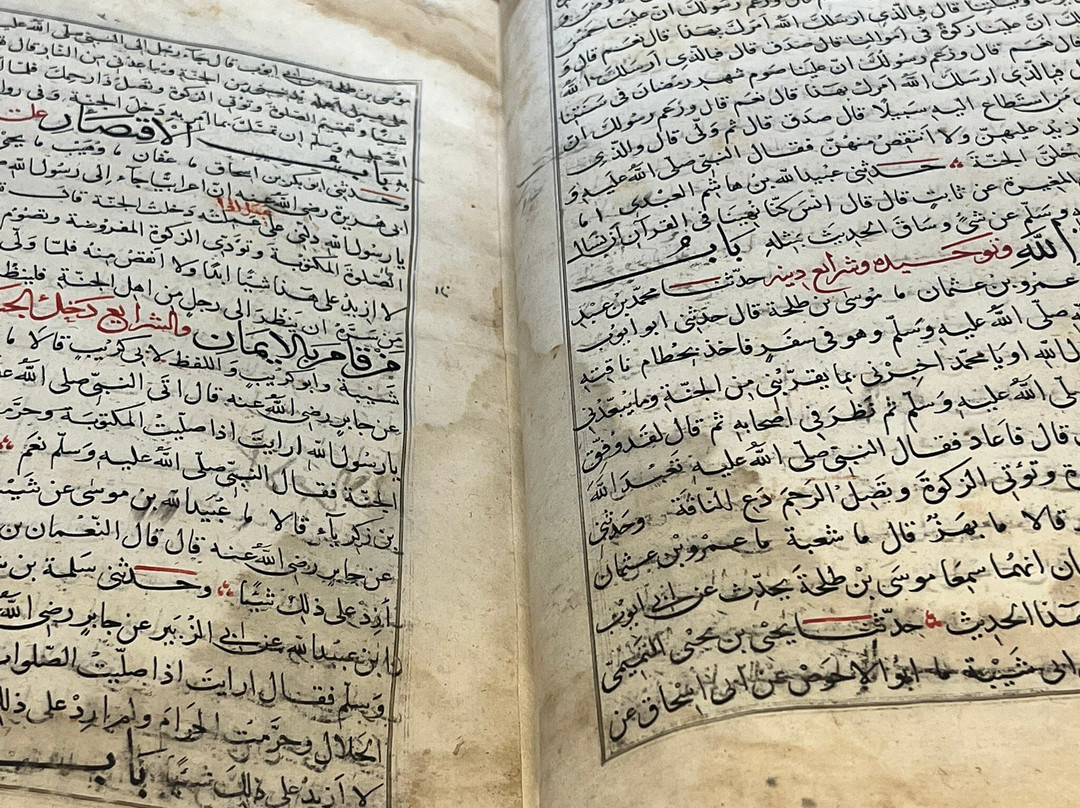 قال وزعم رسولك ان علينا خمس
وليلتنا قال فبالذي ارسلك الله امرك بهذا قال نعم قال و
ك ان علينا زكوة في اموالنا قال صدق قال فبالذي ارسلك الله
قال نعم قال وزعم رسولك ان علينا صوم شهر رمضان في سنتنا
فبالذي ارسلك الله امرك بهذا قال نعم قال وزعم رسولك ان
من استطاع اليه سبيلا قال صدق قال ثم ولى قال والذي
ازيد عليهن ولا انتقص منهن فقال النبي صلى الله عليه و
خلن الجنة حدثني عبيد الله بن هاشم العبدي نا
المغيرة عن ثابت قال قال انس كنا نهينا في القرآن ان نسأل
وسلم عن شئ وساق الحديث بمثله باب
الله وتوحيده وشرايع دينه حدثنا محمد بن عبد
عمرو بن عثمان نا موسى بن طلحة قال حدثني ابو ايوب
صلى الله عليه وسلم وهو في سفر فاخذ بخطام ناقته
ل الله او يا محمد اخبرني بما يقربني من الجنة وما يبعدني
لى الله عليه وسلم ثم نظر في اصحابه ثم قال لقد وفق
قال فاعاد فقال النبي صلى الله عليه تعبد الله
ة وتؤتي الزكوة وتصل الرحم دع الناقة وحدثني
قالا نا بهز قال نا شعبة نا محمد عمرو بن عثمان
ان انهما سمعا موسى بن طلحة يحدث عن ابي ايوب
هذا الحديث حدثنا يحيى بن يحيى التميمي
ابي شيبة نا ابو الاحوص عن ابي اسحاق عن
موسى بن طلحة عن ابي ايوب قال جاء رجل الى النبي صلى الله عليه
على عمل اعمله يدنيني من الجنة ويباعدني من النار قال
شيئا وتقيم الصلوة وتؤتي الزكوة وتصل ذا رحمك فلما
الله عليه وسلم ان تمسك بما امر به دخل الجنة وفي رو
به باب الاقتصار على
وحدثني ابو بكر بن اسحاق نا عفان نا وهيب نا يحيى
ابي هريرة رضي الله عنه ان اعرابيا جاء الى رسول الله
يا رسول الله دلني على عمل اذا عملته دخلت الجنة قال
الصلوة المكتوبة وتؤدي الزكوة المفروضة وتصوم
لا ازيد على هذا شيئا ابدا ولا انقص منه فلما ولى
من سره ان ينظر الى رجل من اهل الجنة فلينظر
من قام بالايمان والشرايع دخل الجنة
شيبة وابو كريب واللفظ لابي كريب قالا نا
عن جابر رضي الله عنه قال اتى النبي صلى الله عليه
يا رسول الله ارايت اذا صليت المكتوبة وحرمت
الجنة فقال النبي صلى الله عليه وسلم نعم
بن زكرياء قالا نا عبيد الله بن موسى عن شيبان
عن جابر رضي الله عنه قال قال النعمان بن
ازد على ذلك شيئا وحدثني سلمة بن شبيب
نا ابن عبيد الله عن ابي الزبير عن جابر رضي الله
وسلم فقال ارايت اذا صليت الصلوات
الحلال وحرمت الحرام ولم ازد على ذلك
لا ازيد على ذلك شيئا باب